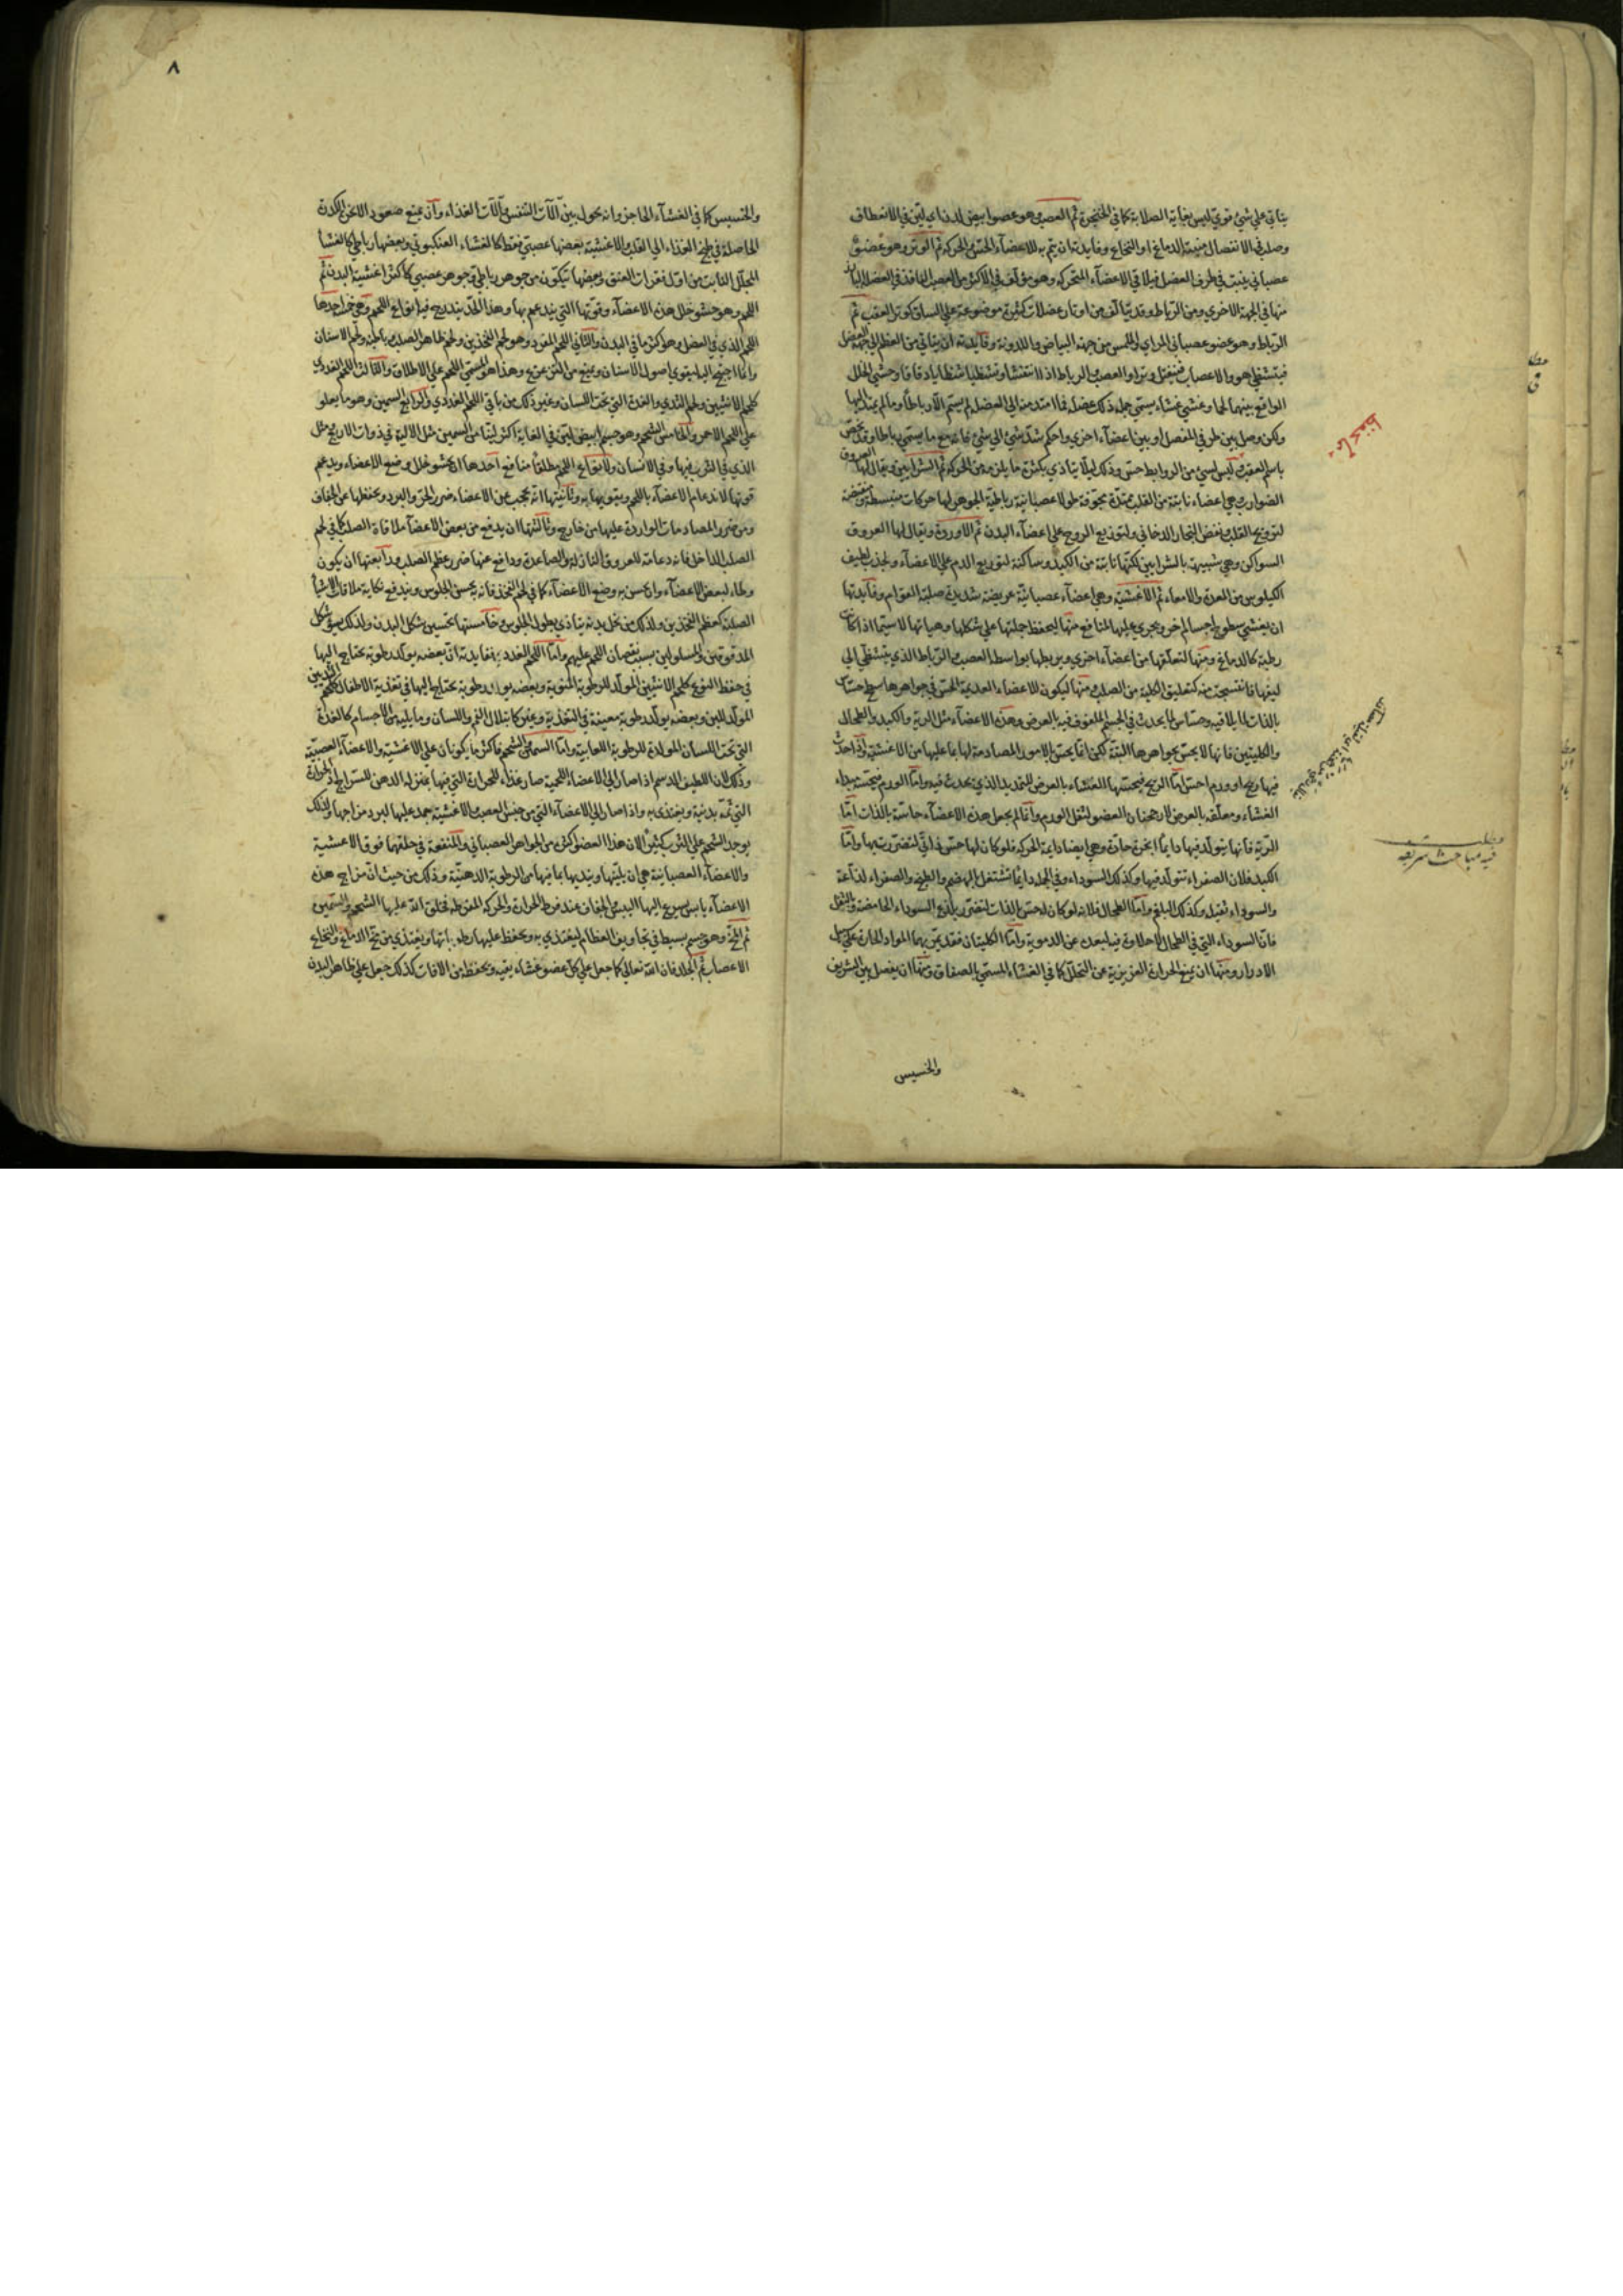 يتأتي علي شئ قوي ليس بغاية الصلابة كما في الحنجرة ثم العصب وهو عضو ابيض لدن اي لين في الانعطاف
وصلب في الانفصال منبته الدماغ او النخاع وفايدته ان يتم به للاعضآء الحس والحركه ثم الوتر وهو عضو
عصباني ينبت في طرف العضل فيلاقي الاعضآء المتحركه وهو مؤلف في الاكثر من العصب النافذ في العضله البارز
منها في الجهة الاخري ومن الرباط وقد يتألف من اوتار عضلات كثيرة موضوعة علي الساق كوتر العقب ثم
الرباط وهو عضو عصباني المراي والملمس من جهة البياض واللدونة وفايدته ان يتأتي من العظم الي جهة العضل
فيتشظي هو والاعصاب
الواقع بينهما لحما وغشي غشاء يسمي جملة ذلك عضلة فما امتد منه الي العضلة لم يسم الا رباطا وما لم يمتد اليها
ولكن وصل بين طرفي المفصل او بين اعضآء اخري واحكم شد شئ الي شئ فانه مع ما يسمي رباطا وقد يخص
باسم العقب وليس لشئ من الروابط حس وذلك ليلا يتأذي بكثرة ما يلزمه من الحركة ثم الشرايين ويقال لها العروق
الضوارب وهي اعضاء نابتة من القلب ممتدة مجوفة طولا عصبانية رباطية الجوهر لها حركات منبسطة ومنقبضة
لترويح القلب ونفض البخار الدخاني ولتوزيع الروح علي اعضآء البدن ثم الاوردة ويقال لها العروق
السواكن وهي شبيهة بالشرايين لكنها نابتة من الكبد وساكنة لتوزيع الدم علي الاعضآء ولجذب لطيف
الكيلوس من المعدة والامعاء ثم الاغشية وهي اعضآء عصبانية عريضة شديدة صلبة القوام وفايدتها
ان يغشي سطوح اجسام اخر ويجري عليها لمنافع منها ليحفظ جملتها علي شكلها وهياتها لا سيما اذا كانت
رطبة كالدماغ ومنها لتعلقها من اعضآء اخري ويربطها بواسطة العصب والرباط الذي يتشظي الي
ليفها فانتسجت منه كتعليق الكلية من الصلب ومنها ليكون للاعضاء العديمة الحس في جواهرها سطح حساس
بالذات لما يلاقيه وحساس لما يحدث في الجسم الملفوف فيه بالعرض وهذه الاعضآء مثل الرية والكبد والطحال
والكليتين فانها لا يحس بجواهرها البتة لكن انما يحس بالامور المصادمة لها بما عليها من الاغشية واذا حدث
فيها ريح او ورم احس اما الريح فيحسها الغشاء بالعرض للتمديد الذي يحدث فيه واما الورم فيحسه مبداء
الغشاء ومعلقه بالعرض لارجحنان العضو لثقل الورم وانما لم يجعل هذه الاعضآء حاسة بالذات اما
الرية فانها يتولد فيها دايما ابخرة حادة وهي ايضا دايمة الحركة فلو كان لها حس ذاتي لتضررت بها واما
الكبد فلان الصفراء تتولد فيها وكذلك السوداء وفي الجملة دايما تشتغل بالهضم والطبخ والصفراء لذاعة
والسوداء ثقيلة وكذلك البلغم واما الطحال فلانه لو كان له حس بالذات لتضرر بلذع السوداء الحامضة والثقل
فان السوداء التي في الطحال لا حلاوة فيه لبعده عن الدموية واما الكليتان فقد يمر بهما المواد الحادة علي سبيل
الادرار ومنها ان يمنع الحرارة الغريزية عن التحلل كما في الغشاء المسمي بالصفاق ومنها ان يفصل بين الشريف
والخسيس
مطلب
فيه مباحث شريفة
٨
والخسيس كما في الغشآء الحاجز وانه يحول بين آلات التنفس وآلات الغذاء وان يمنع صعود الابخرة الكدرة
الحاصلة في طبخ الغذاء الي القلب والاغشية بعضها عصبي فقط كالغشاء العنكبوتي وبعضها رباطي كالغشأ
المجلل النابت من اول فقرات العنق وبعضها يتكون من جوهر رباطي وجوهر عصبي كاكثر اغشية البدن ثم
اللحم وهو حشو خلل هذه الاعضآء وقوتها التي يندعم بها وهذا الحد يندرج فيه انواع اللحم وهي خمسة احدها
اللحم الذي في العضل وهو اكثر ما في البدن والثاني اللحم المفرد وهو لحم الفخذين ولحم ظاهر الصلب وباطنه ولحم الاسنان
وانما احتيج اليه ليقوي اصول الاسنان ويمنع من التزعزع وهذا هو المسمي اللحم علي الاطلاق والثالث اللحم الغددي
كلحم الانثيين ولحم الثدي والغدة التي تحت اللسان وغير ذلك من باقي اللحم الغددي والرابع السمين وهو ما يعلو
علي اللحم الاحمر والخامس الشحم وهو جسم ابيض لين في الغاية اكثر لينا من السمين مثل الالية في ذوات الاربع ومثل
الذي في الثرب فيها وفي الانسان ولانواع اللحم مطلقا منافع احدها ان يحشو خلل وضع الاعضاء ويدعم
قوتها لاندعام الاعضآء باللحم ويقويها به وثانيتها انه يحجب عن الاعضاء ضرر الحر والبرد ويحفظها عن الجفاف
ومن ضرر المصادمات الواردة عليها من خارج وثالثتها ان يدفع عن بعض الاعضآ ملاقاة الصلب كما في لحم
الصلب الداخل فانه دعامة للعروق النازلة والصاعدة ودافع عنها ضرر عظم الصلب ورابعتها ان يكون
وطاء لبعض الاعضآء وان يحسن به وضع الاعضآء كما في لحم الفخذ فانه يحسن الجلوس ويندفع نكاية ملاقات الاشيأ
الصلبة كعظم الفخذين ولذلك من نحل بدنه يتأذي بطول الجلوس وخامستها تحسين شكل البدن ولذلك يسوء شكل
المدقوقين والمسلولين بسبب نقصان اللحم عليهم واما اللحم الغددي ففايدته ان بعضه يولد رطوبة يحتاج اليها
في حفظ النوع كلحم الانثيين المولد للرطوبة المنوية وبعضه يولد رطوبة يحتاج اليها في تغذية الاطفال كلحم الثديين
المولد للبن وبعضه يولد رطوبة معينة في التغذية وغيره كابتلال الفم واللسان وما يليه من الاجسام كالغدة
التي تحت اللسان المولدة للرطوبة اللعابية واما السمين والشحم فاكثر ما يكونان علي الاغشية والاعضآء العصبية
وذلك لان اللطيف الدسم اذا صار الي الاعضاء اللحمية صار غذاء للحرارة التي فيها بمنزلة الدهن للسراج اذ الحرارة
التي ثمة بدنية ويغتذي به واذا صار الي الاعضآء التي من جنس العصب والاغشية جمد عليها لبرد مزاجها ولذلك
يوجد الشحم علي الثرب كثيرا لان هذا العضو اكثره من الجواهر العصباني والمنفعة في خلقهما فوق الاغشية
والاعضآء العصبانية هي ان يلينها ويندبها بما فيها من الرطوبة الدهنية وذلك من حيث ان مزاج هذه
الاعضآء يابس يسرع اليها اليبس والجفاف عند فرط الحرارة والحركة المفرطة فخلق الله عليها الشحم والسمين
ثم المخ وهو جسم بسيط في تجاويف العظام ليغتذي به ويحفظ عليها رطوباتها ويغتذي من مخ الدماغ والنخاع
الاعصاب ثم الجلد فان الله تعالي كما جعل علي كل عضو غشاء يقيه ويحفظه من الافات كذلك جعل علي ظاهر البدن